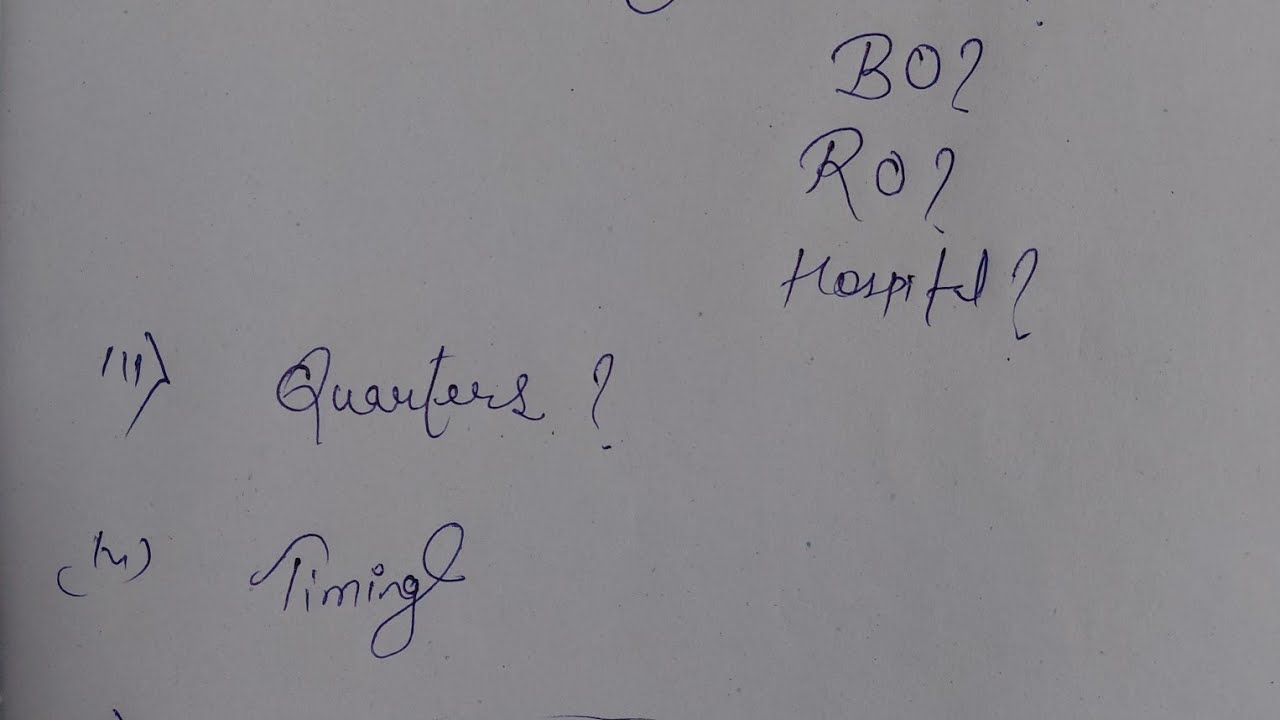 BO?
RO?
Hospital?
iii) Quarters?
(iv) Timing